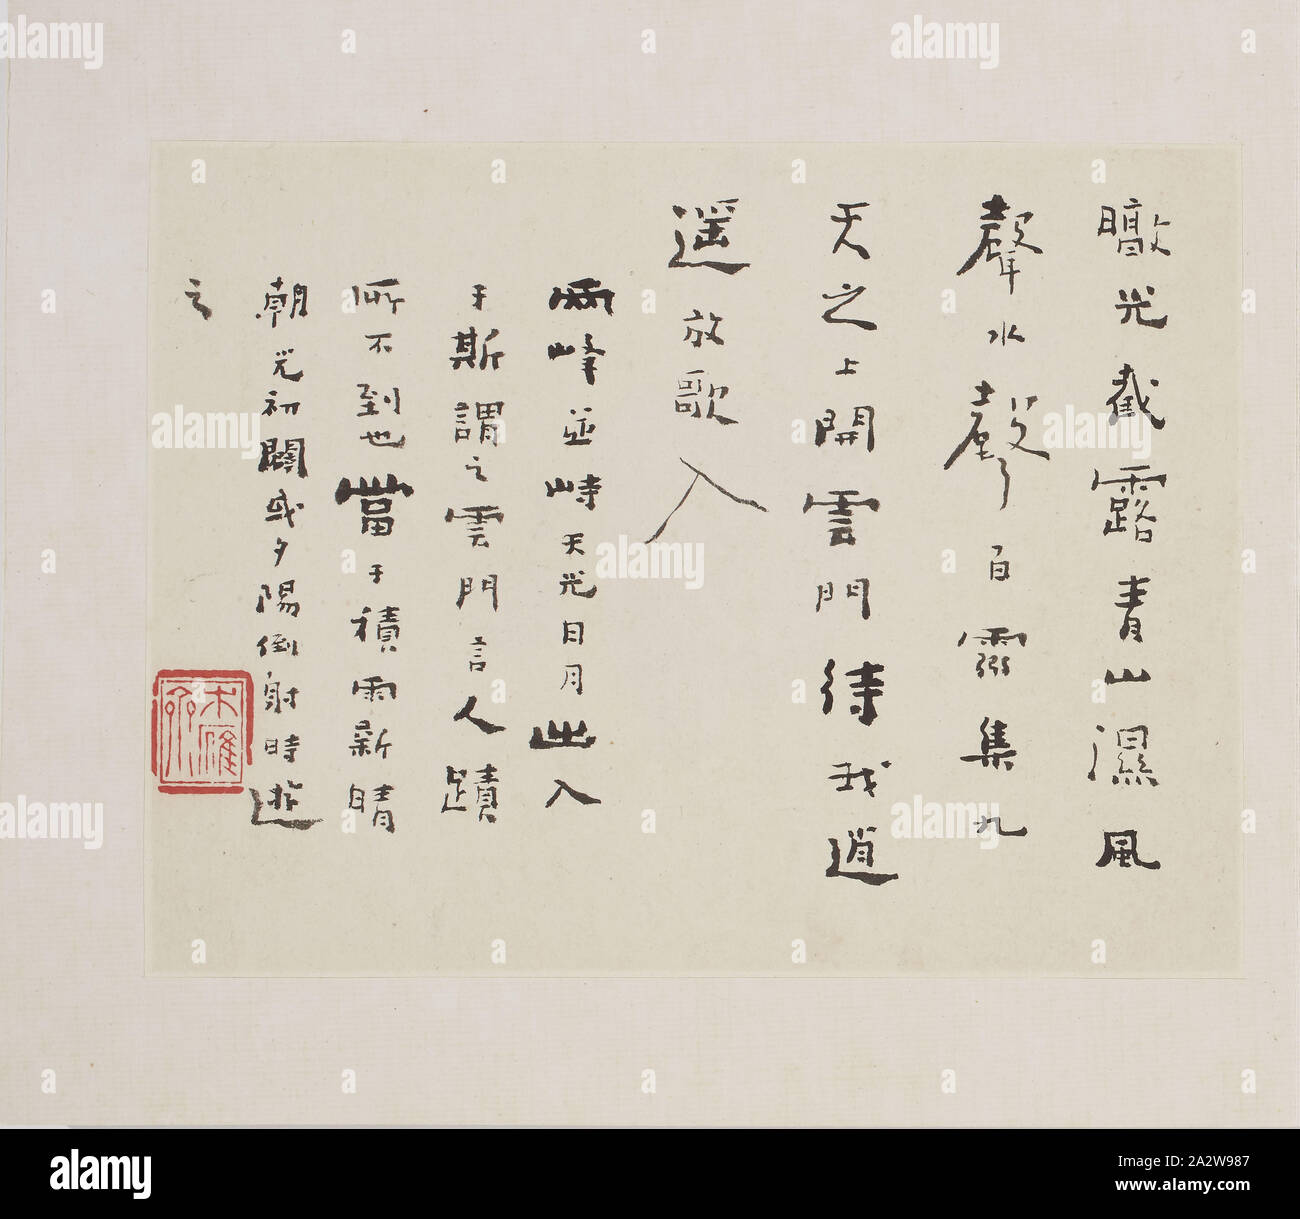 曒光截露青山濕風
聲水聲百靈集九
天之上開雲門待我逍
遥放歌入
兩峰並峙天光日月出入
于斯謂之雲門言人蹟
所不到也當于積雨新晴
朝光初闢或夕陽倒射時遊
之
alamy
Image ID: 2A2W987
www.alamy.com